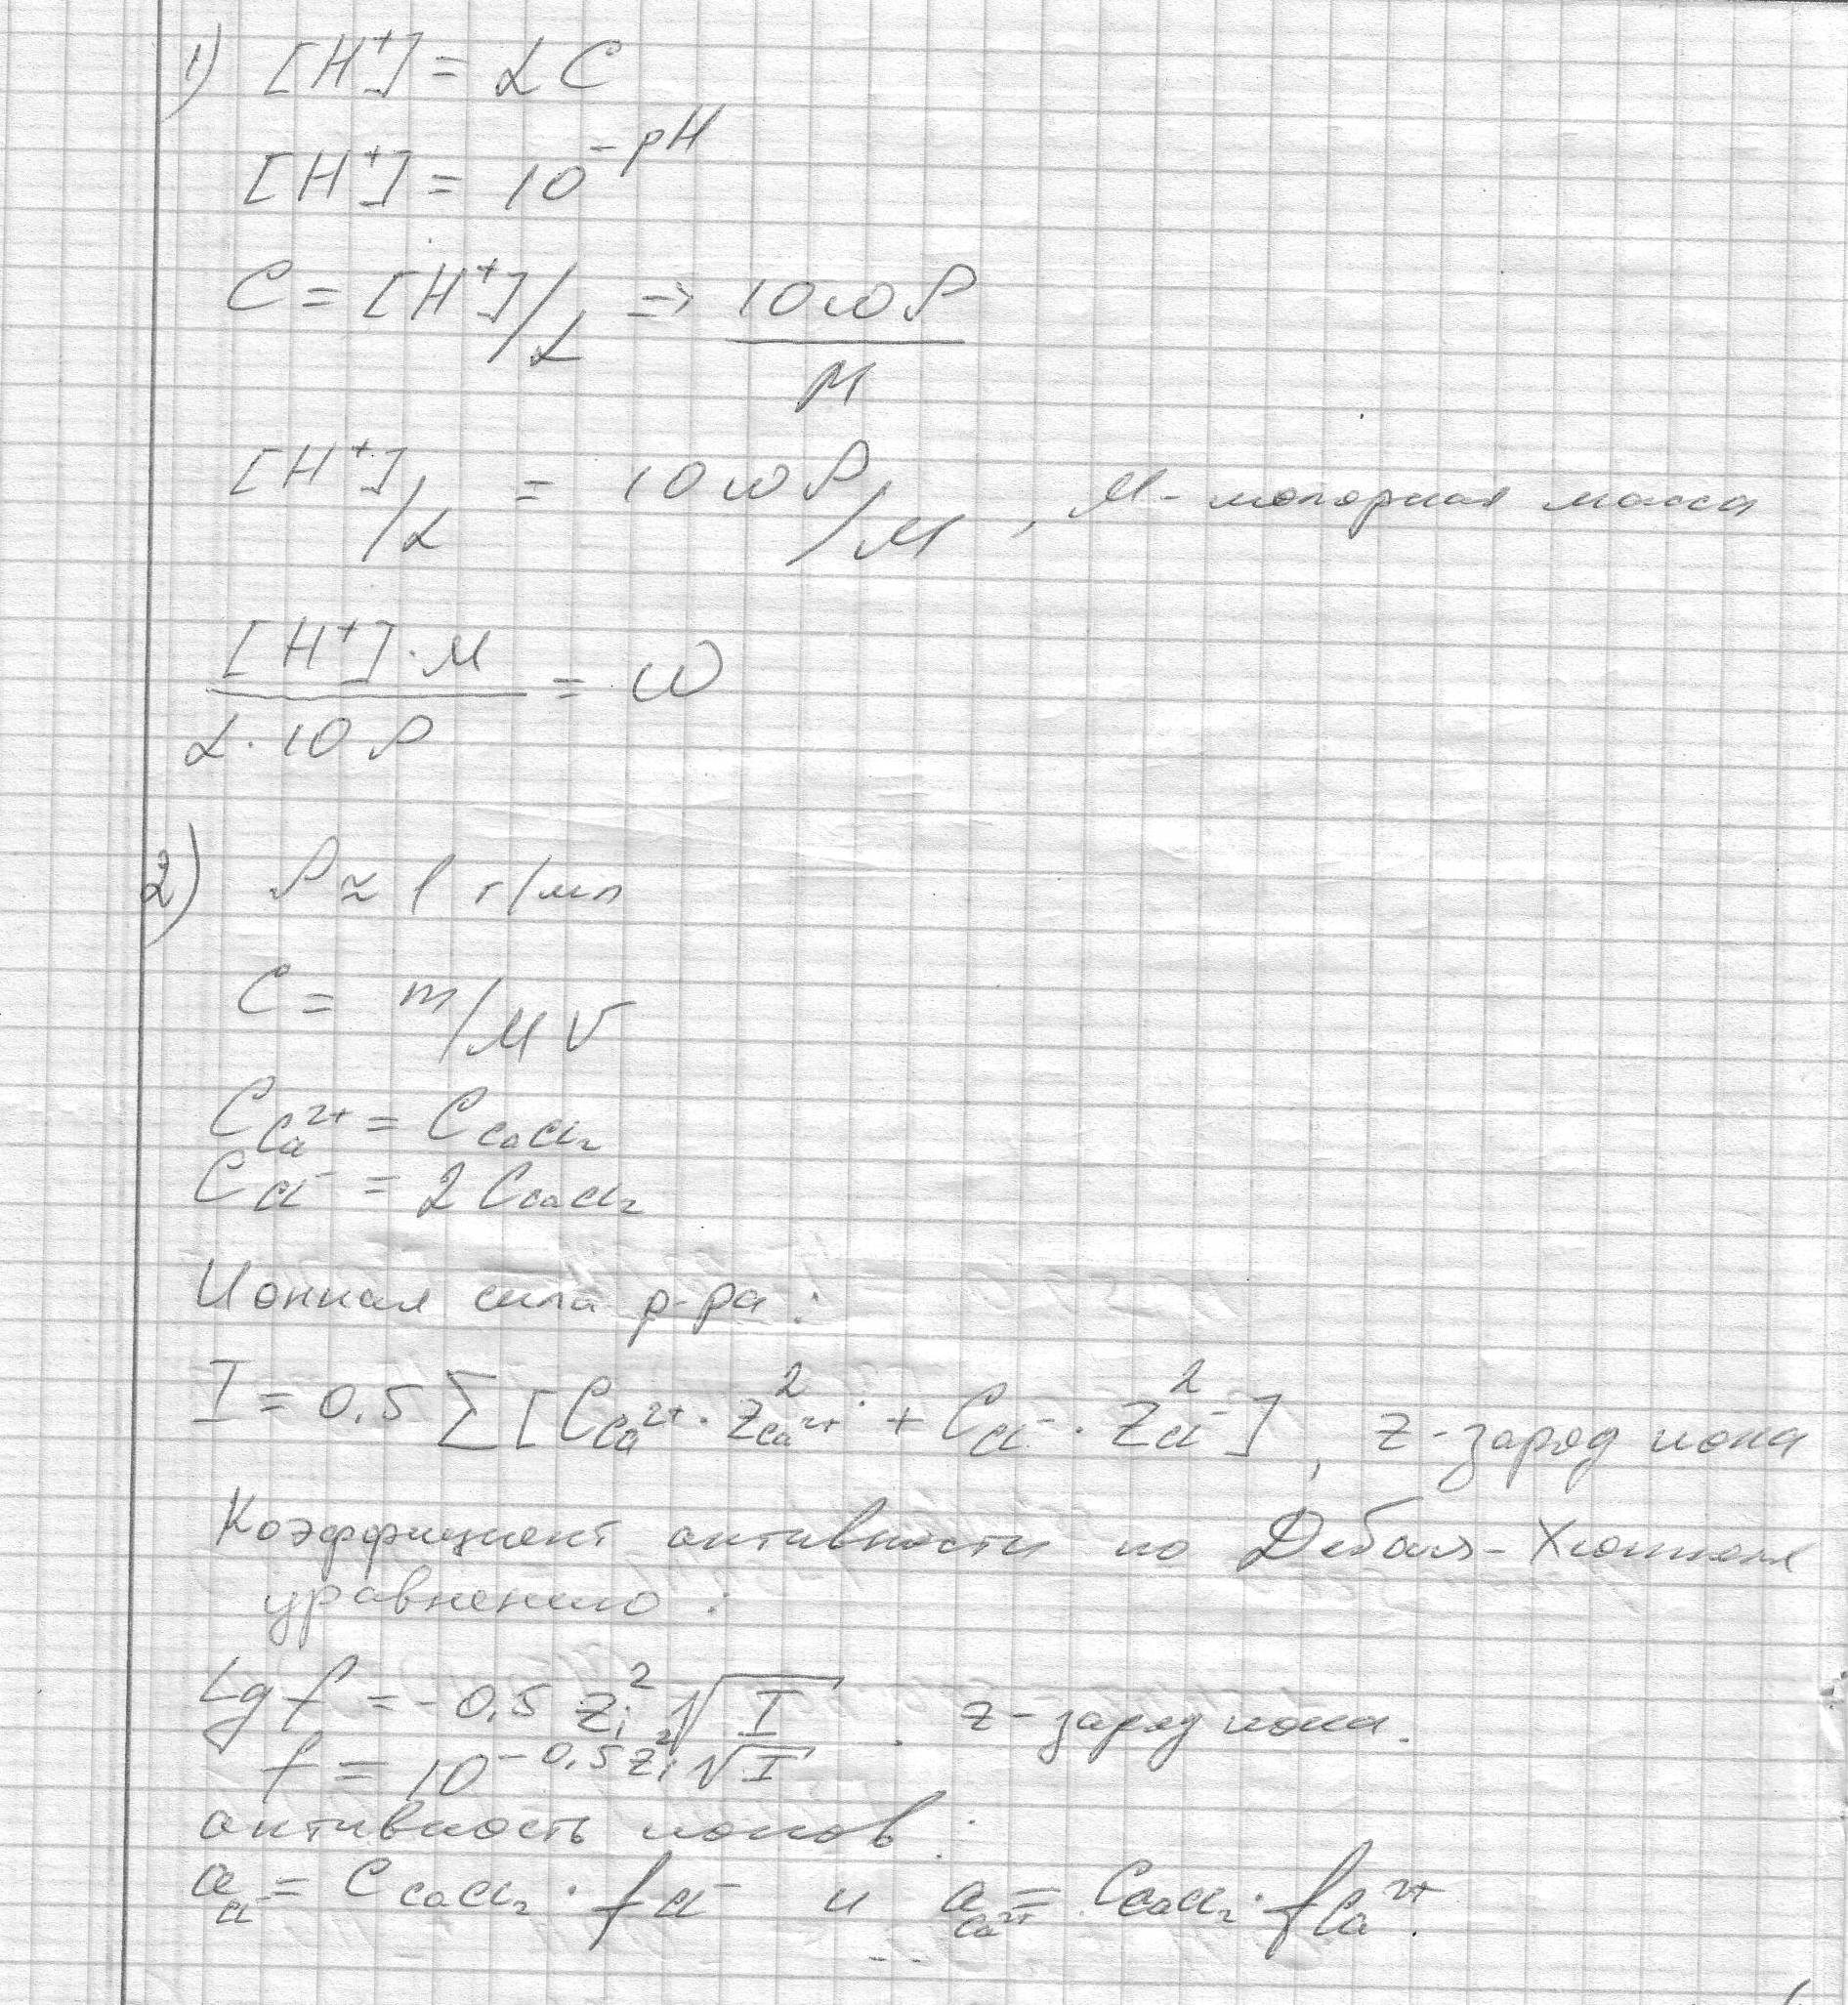 1) [H⁺] = αC
[H⁺] = 10^(-pH)
C = [H⁺]/α => 10ωρ/M
[H⁺]/α = 10ωρ/M , M - молярная масса
[H⁺]·M / α·10ρ = ω
2) ρ ≈ 1 г/мл
C = m/MV
C Ca²⁺ = C CaCl₂
C Cl⁻ = 2 C CaCl₂
Ионная сила р-ра :
I = 0.5 Σ [C Ca²⁺ · Z² Ca²⁺ + C Cl⁻ · Z² Cl⁻] , z - заряд иона
Коэффициент активности по Дебая-Хюккеля
уравнению :
Lg f = -0,5 zᵢ² √I . z - заряд иона.
f = 10^(-0,5 zᵢ² √I)
активность ионов :
a Cl⁻ = C CaCl₂ · f Cl⁻ и a Ca²⁺ = C CaCl₂ · f Ca²⁺.